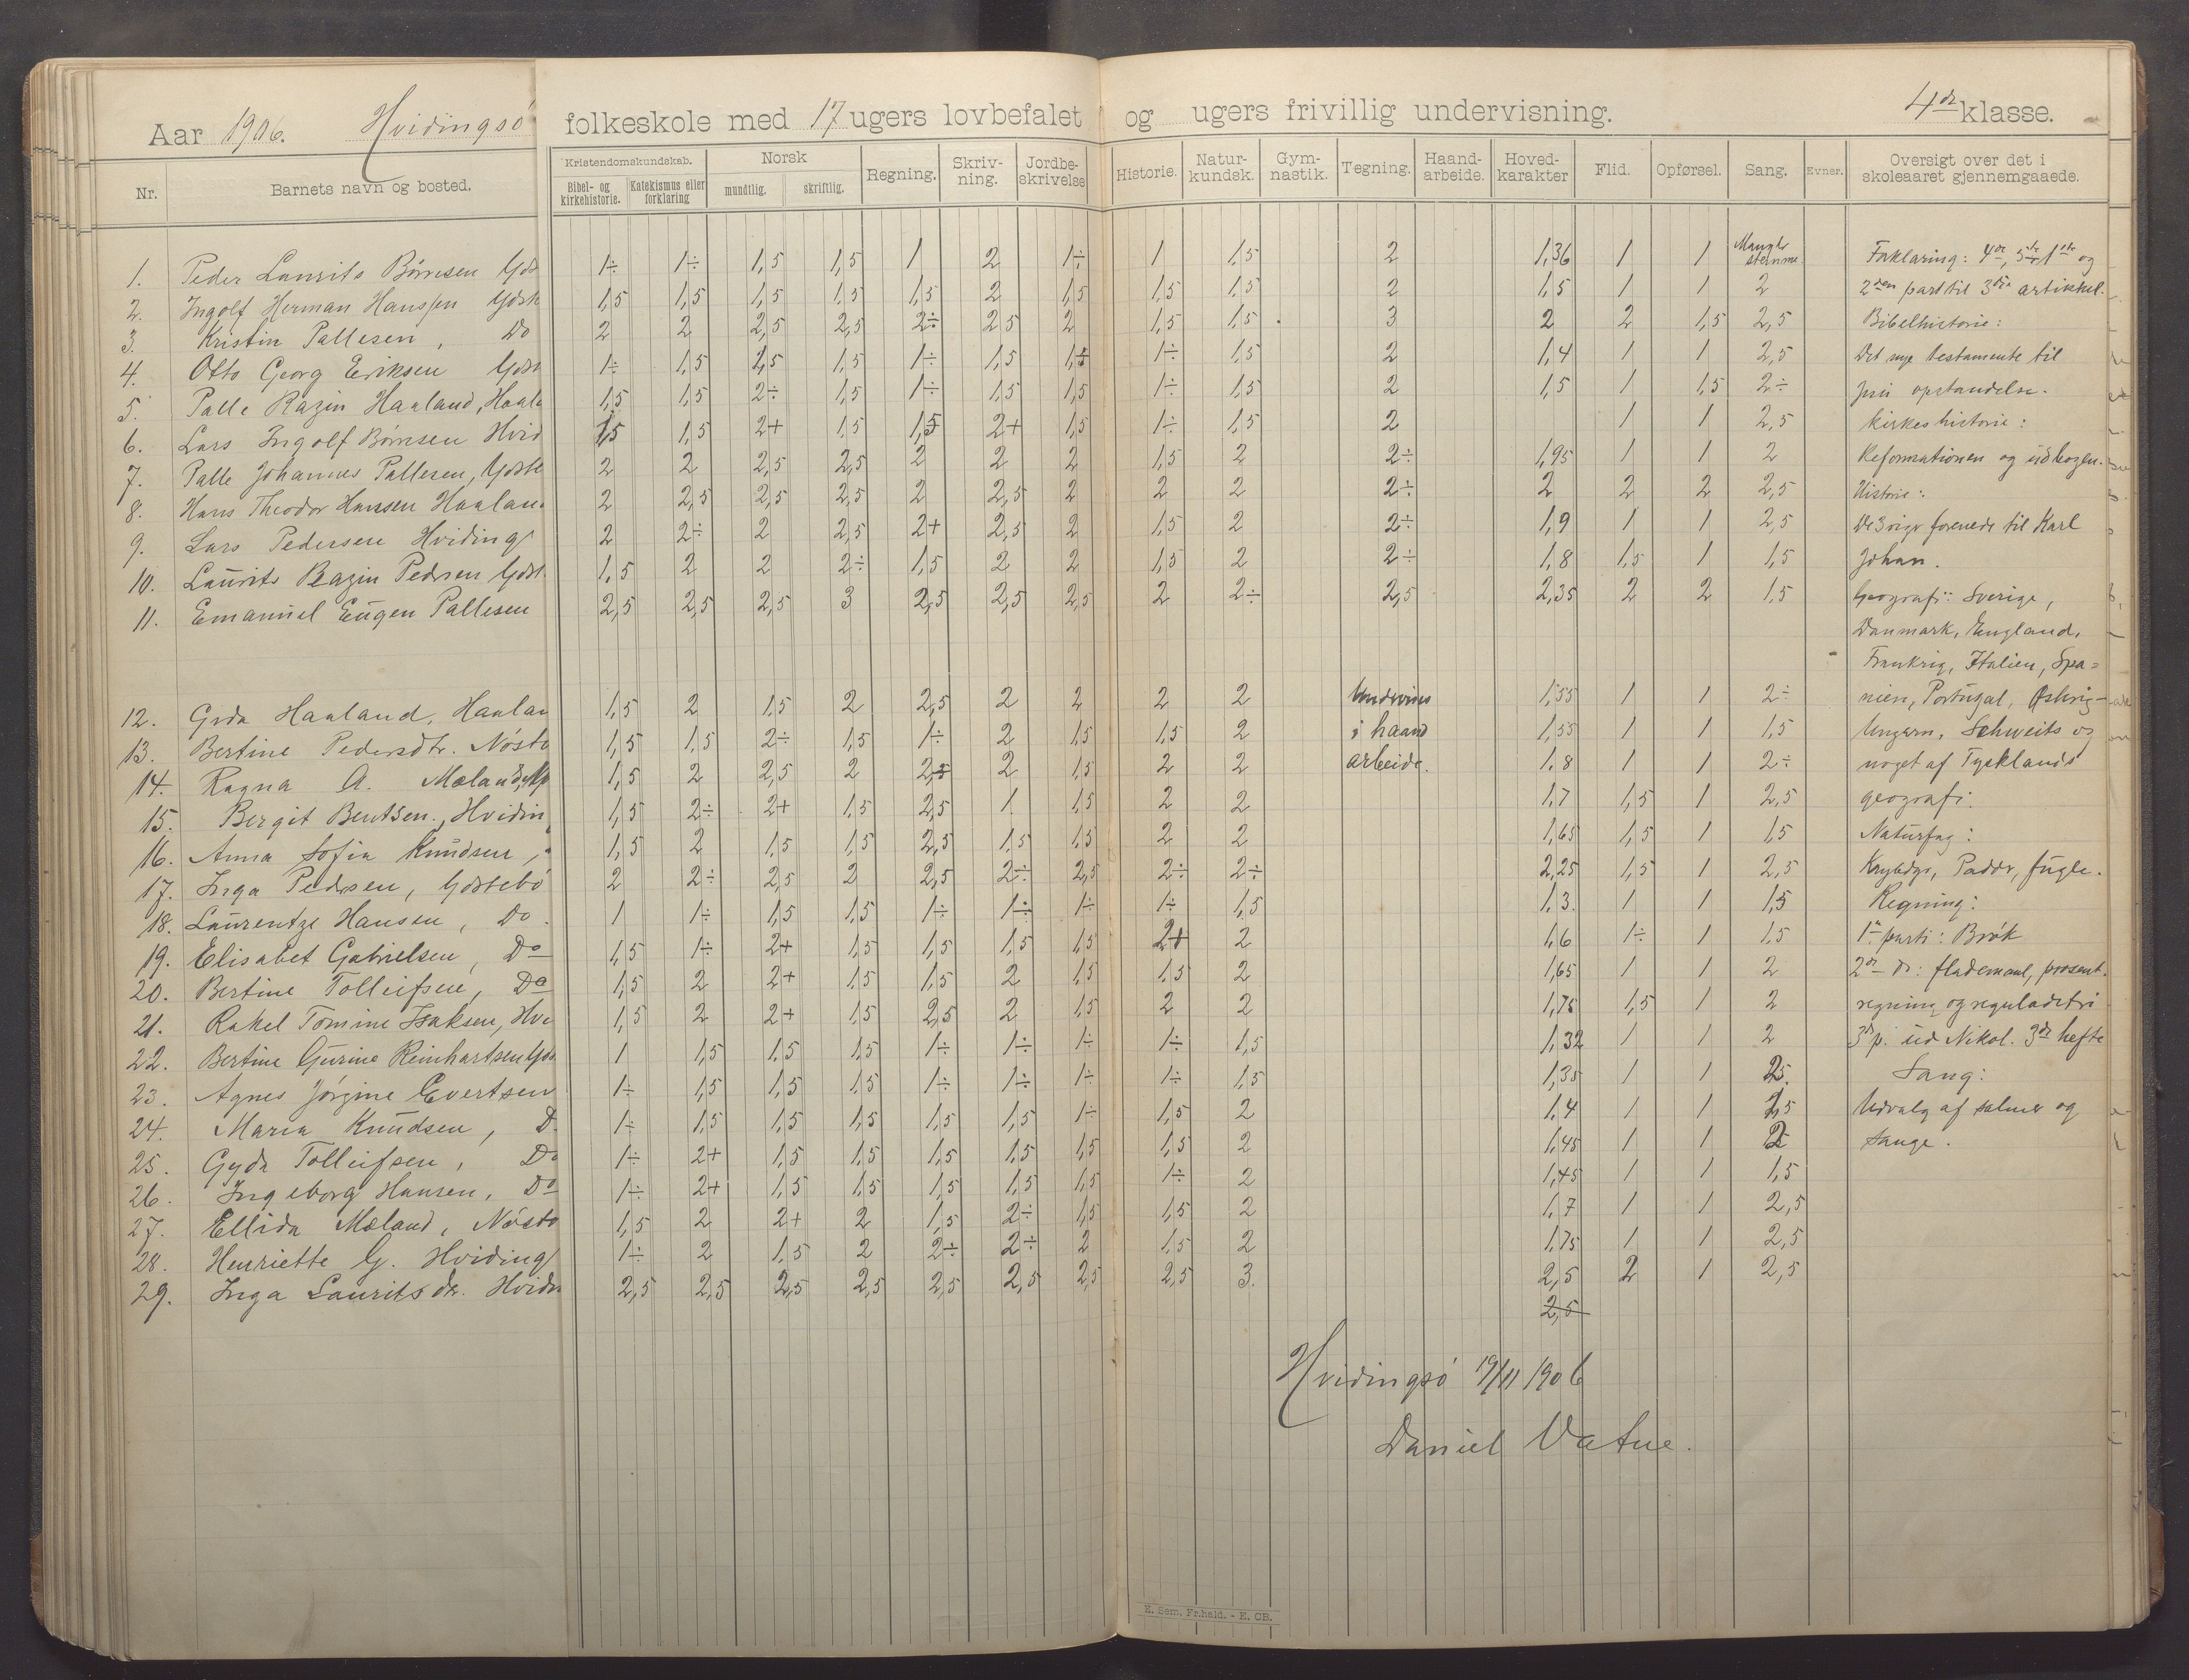 Aar 1906. Hvidingsö folkeskole med 17 ugers lovbefalet og ugers frivillig undervisning. 4de klasse.
Nr. Barnets navn og bosted. Kristendomskundskab. Bibel- og kirkehistorie. Katekismus eller forklaring Norsk mundtlig. skriftlig. Regning. Skriv-ning. Jordbe-skrivelse Historie. Natur-kundsk. Gym-nastik. Tegning. Haand-arbeide. Hoved-karakter Flid. Opførsel. Sang. Evner. Oversigt over det i skoleaaret gjennemgaaede.
1. Peder Laurits Börresen 1÷ 1÷ 1,5 1,5 1 2 1÷ 1 1,5 2 1,36 1 1 Mangler stemme Forklaring: 4de, 5te 1ste og
2. Ingolf Herman Hanssen 1,5 1,5 1,5 1,5 1,5 2 1,5 1,5 1,5 2 1,5 1 1 2 2den part til 3die artikkel.
3. Kristin Pallesen, Do 2 2 2,5 2,5 2÷ 2,5 2 1,5 1,5 3 2 2 1,5 2,5 Bibelhistorie:
4. Otto Georg Eriksen 1÷ 1,5 2,5 1,5 1÷ 1,5 1,5 1÷ 1,5 2 1,4 1 1 2,5 Det nye testamente til
5. Palle Razin Haaland, Haala 1,5 1,5 2÷ 1,5 1÷ 1,5 1,5 1÷ 1,5 2 1,5 1 1,5 2÷ Jesu opstandelse.
6. Lars Ingolf Börresen Hvid 1,5 1,5 2+ 1,5 1,5 2+ 1,5 1÷ 1,5 2 1 1 2,5 Kirkeshistorie:
7. Palle Johannes Pallesen, 2 2 2,5 2,5 2 2 2 1,5 2 2÷ 1,95 1 1 2 Reformationen og udbogen.
8. Hans Theodor Hanssen Haalan 2 2,5 2,5 2,5 2 2,5 2 2 2 2÷ 2 2 2 2,5 Historie:
9. Lars Pedersen Hviding 2 2÷ 2 2,5 2+ 2,5 2 1,5 2 2÷ 1,9 1 1 2,5 De 3 riger forenede til Karl
10. Laurits Razin Pedersen 1,5 2 2 2÷ 1,5 2 2 1,5 2 2÷ 1,8 1,5 1 1,5 Johan.
11. Emanuel Eugen Pallesen 2,5 2,5 2,5 3 2,5 2,5 2,5 2 2÷ 2,5 2,35 2 2 1,5 Geografi: Sverige,
Danmark, England,
Frankrig, Italien, Spa=
12. Gyda Haaland, Haalan 1,5 2 1,5 2 2,5 2 2 2 2 Undervises 1,55 1 1 2÷ nien, Portugal, Østrig-
13. Bertine Pedersdtr. Nösto 1,5 1,5 2÷ 1,5 1÷ 2 1,5 1,5 2 i haand 1,55 1 1 1,5 Ungarn, Schweits og
14. Ragna A. Mæland, 1,5 2 2,5 2 2,5 2 1,5 2 2 arbeide. 1,8 1 1 2÷ noget af Tysklands
15. Bergit Bentsen, Hvidin 1,5 2÷ 2+ 1,5 2,5 1 1,5 2 2 1,7 1,5 1 2,5 geografi.
16. Anna Sofia Knudsen, 1,5 2 1,5 1,5 2,5 1,5 1,5 2 2 1,65 1,5 1 1,5 Naturfag:
17. Inga Pedersen, Göstebö 2 2÷ 2,5 2 2,5 2÷ 2,5 2÷ 2÷ 2,25 1,5 1 2,5 Krybdyr, Padder, fugle.
18. Laurentze Hansen, Do. 1 1÷ 1,5 1,5 1÷ 1÷ 1÷ 1÷ 1,5 1,3 1 1 1,5 Regning:
19. Elisabet Gabrielsen, Do 1,5 1÷ 2+ 1,5 1,5 1,5 1,5 2+ 2 1,6 1÷ 1 1,5 1ste parti: Brök
20. Bertine Tolleifsen, Do 1,5 2 2+ 1,5 1,5 2 1,5 1,5 2 1,65 1 1 2 2det do: flademaal, prosent.
21. Rakel Tomine Isaksen, Hvi 1,5 2 2+ 1,5 2,5 2 1,5 2 2 1,75 1,5 1 2 regning og reguladetri
22. Bertine Gurine Reinhartsen 1 1,5 1,5 1,5 1÷ 1÷ 1÷ 1÷ 1,5 1,32 1 1 2 3die p. ud Nikol. 3die hefte
23. Agnes Jörgine Evertsen 1÷ 1,5 1,5 1,5 1÷ 1÷ 1÷ 1÷ 1,5 1,35 1 1 2,5 Sang:
24. Maria Knudsen, D. 1÷ 1,5 1,5 1,5 1,5 1,5 1÷ 1,5 2 1,4 1 1 2,5 Udvalg af salmer og
25. Gyda Tolleifsen, Do 1÷ 2+ 1,5 1,5 1,5 1,5 1,5 1,5 2 1,45 1 1 2 sange.
26. Ingeborg Hansen, Do 1÷ 2+ 1,5 1,5 1,5 1,5 1,5 1÷ 2 1,45 1 1 1,5
27. Ellida Mæland, Nösto 1,5 2 2+ 2 1,5 2÷ 1,5 1,5 2 1,7 1 1 2,5
28. Henriette G. Hviding 1÷ 2 1,5 2 2÷ 2÷ 2 1,5 2 1,75 1 1 2,5
29. Inga Lauritsdtr. Hvidin 2,5 2,5 2,5 2,5 2,5 2,5 2,5 2,5 3. 2,5 2 1 2,5
2,5
Hvidingsö 19/11 1906
Daniel Vatne.
E. Sem, Fr.hald. - E. OB.